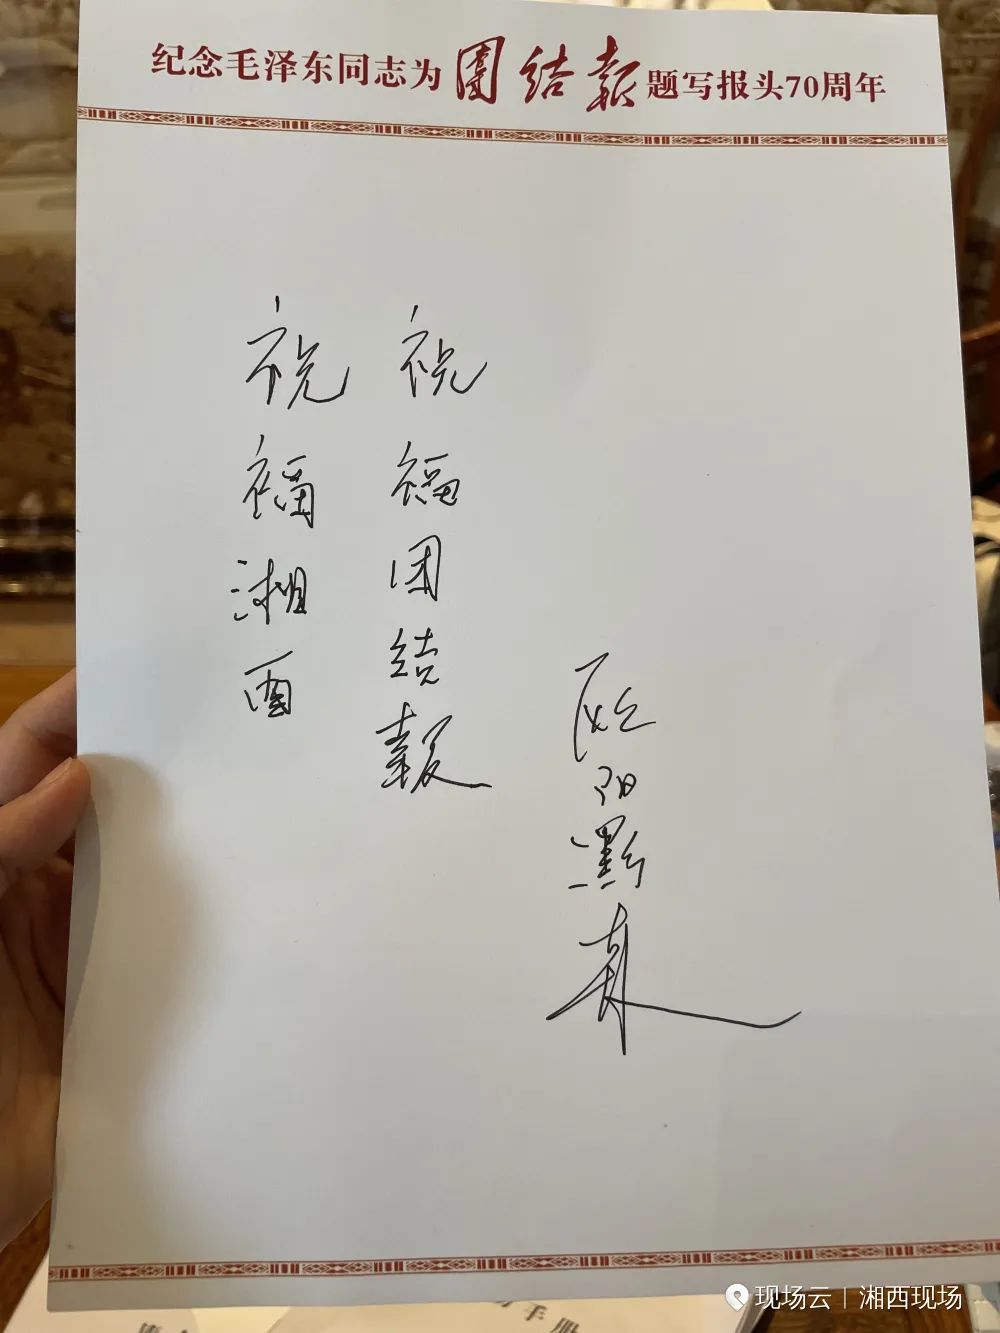 纪念毛泽东同志为團结報题写报头70周年
祝福湘西
祝福团结報
欧阳黔森
现场云｜湘西现场
手册